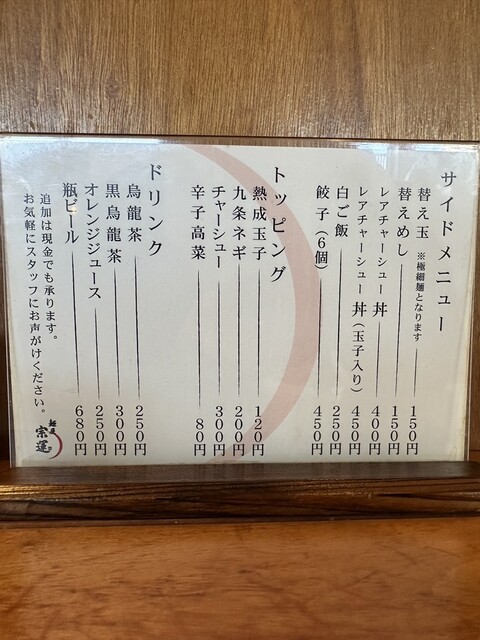 サイドメニュー
替え玉 ※極細麺となります 150円
替えめし 150円
レアチャーシュー丼 400円
レアチャーシュー丼(玉子入り) 450円
白ご飯 250円
餃子(6個) 450円
トッピング
熟成玉子 120円
九条ネギ 200円
チャーシュー 300円
辛子高菜 80円
ドリンク
烏龍茶 250円
黒烏龍茶 300円
オレンジジュース 250円
瓶ビール 680円
追加は現金でも承ります。
お気軽にスタッフにお声がけください。
麺屋
宗運